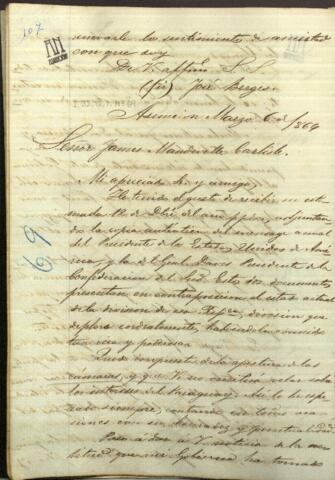 107
los sentimientos de amistad
con que soy
De V. affmo S. S.
(fir) José Berges.
Asuncion Marzo 6 de 1864
Senor James Mandeville Carlisle.
Mi apreciado Sr. y amigo,
He tenido el gusto de recibir su esti
mada 12 de Dbre del año ppdo, adjuntan
do la copia autentica del mensage anual
del Presidente de los Estados Unidos de Ame
rica y la del Gral Davis Presidente de la
Confederacion del Sud. Estos dos documentos
presentan en contraposicion el estado actual
de la division de esa Repca, division que
deploro cordialmente, habiendola conocido
tan rica y poderosa.
Quedo impuesto de la apertura de las
camaras, y que V. no omitirá velar sobre
los intereses del Paraguay. Asi lo he espe
rado siempre, contando en todas oca
siones con su lealtad y puntualidad.
Paso á dar a V. noticia de la
que mi Gobierno ha tomado
69